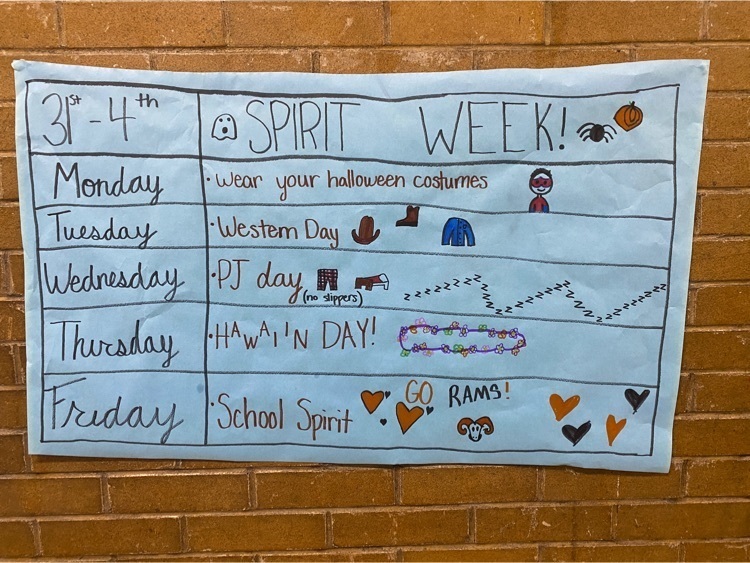 31st - 4th
SPIRIT WEEK!
Monday
· Wear your halloween costumes
Tuesday
· Western Day
Wednesday
· PJ day
(no slippers)
zzzzzzzzzzzzzzzzzzzzzzzzzzzzzzzzzzzzzz
Thursday
· HAWAI'N DAY!
Friday
· School Spirit
GO RAMS!